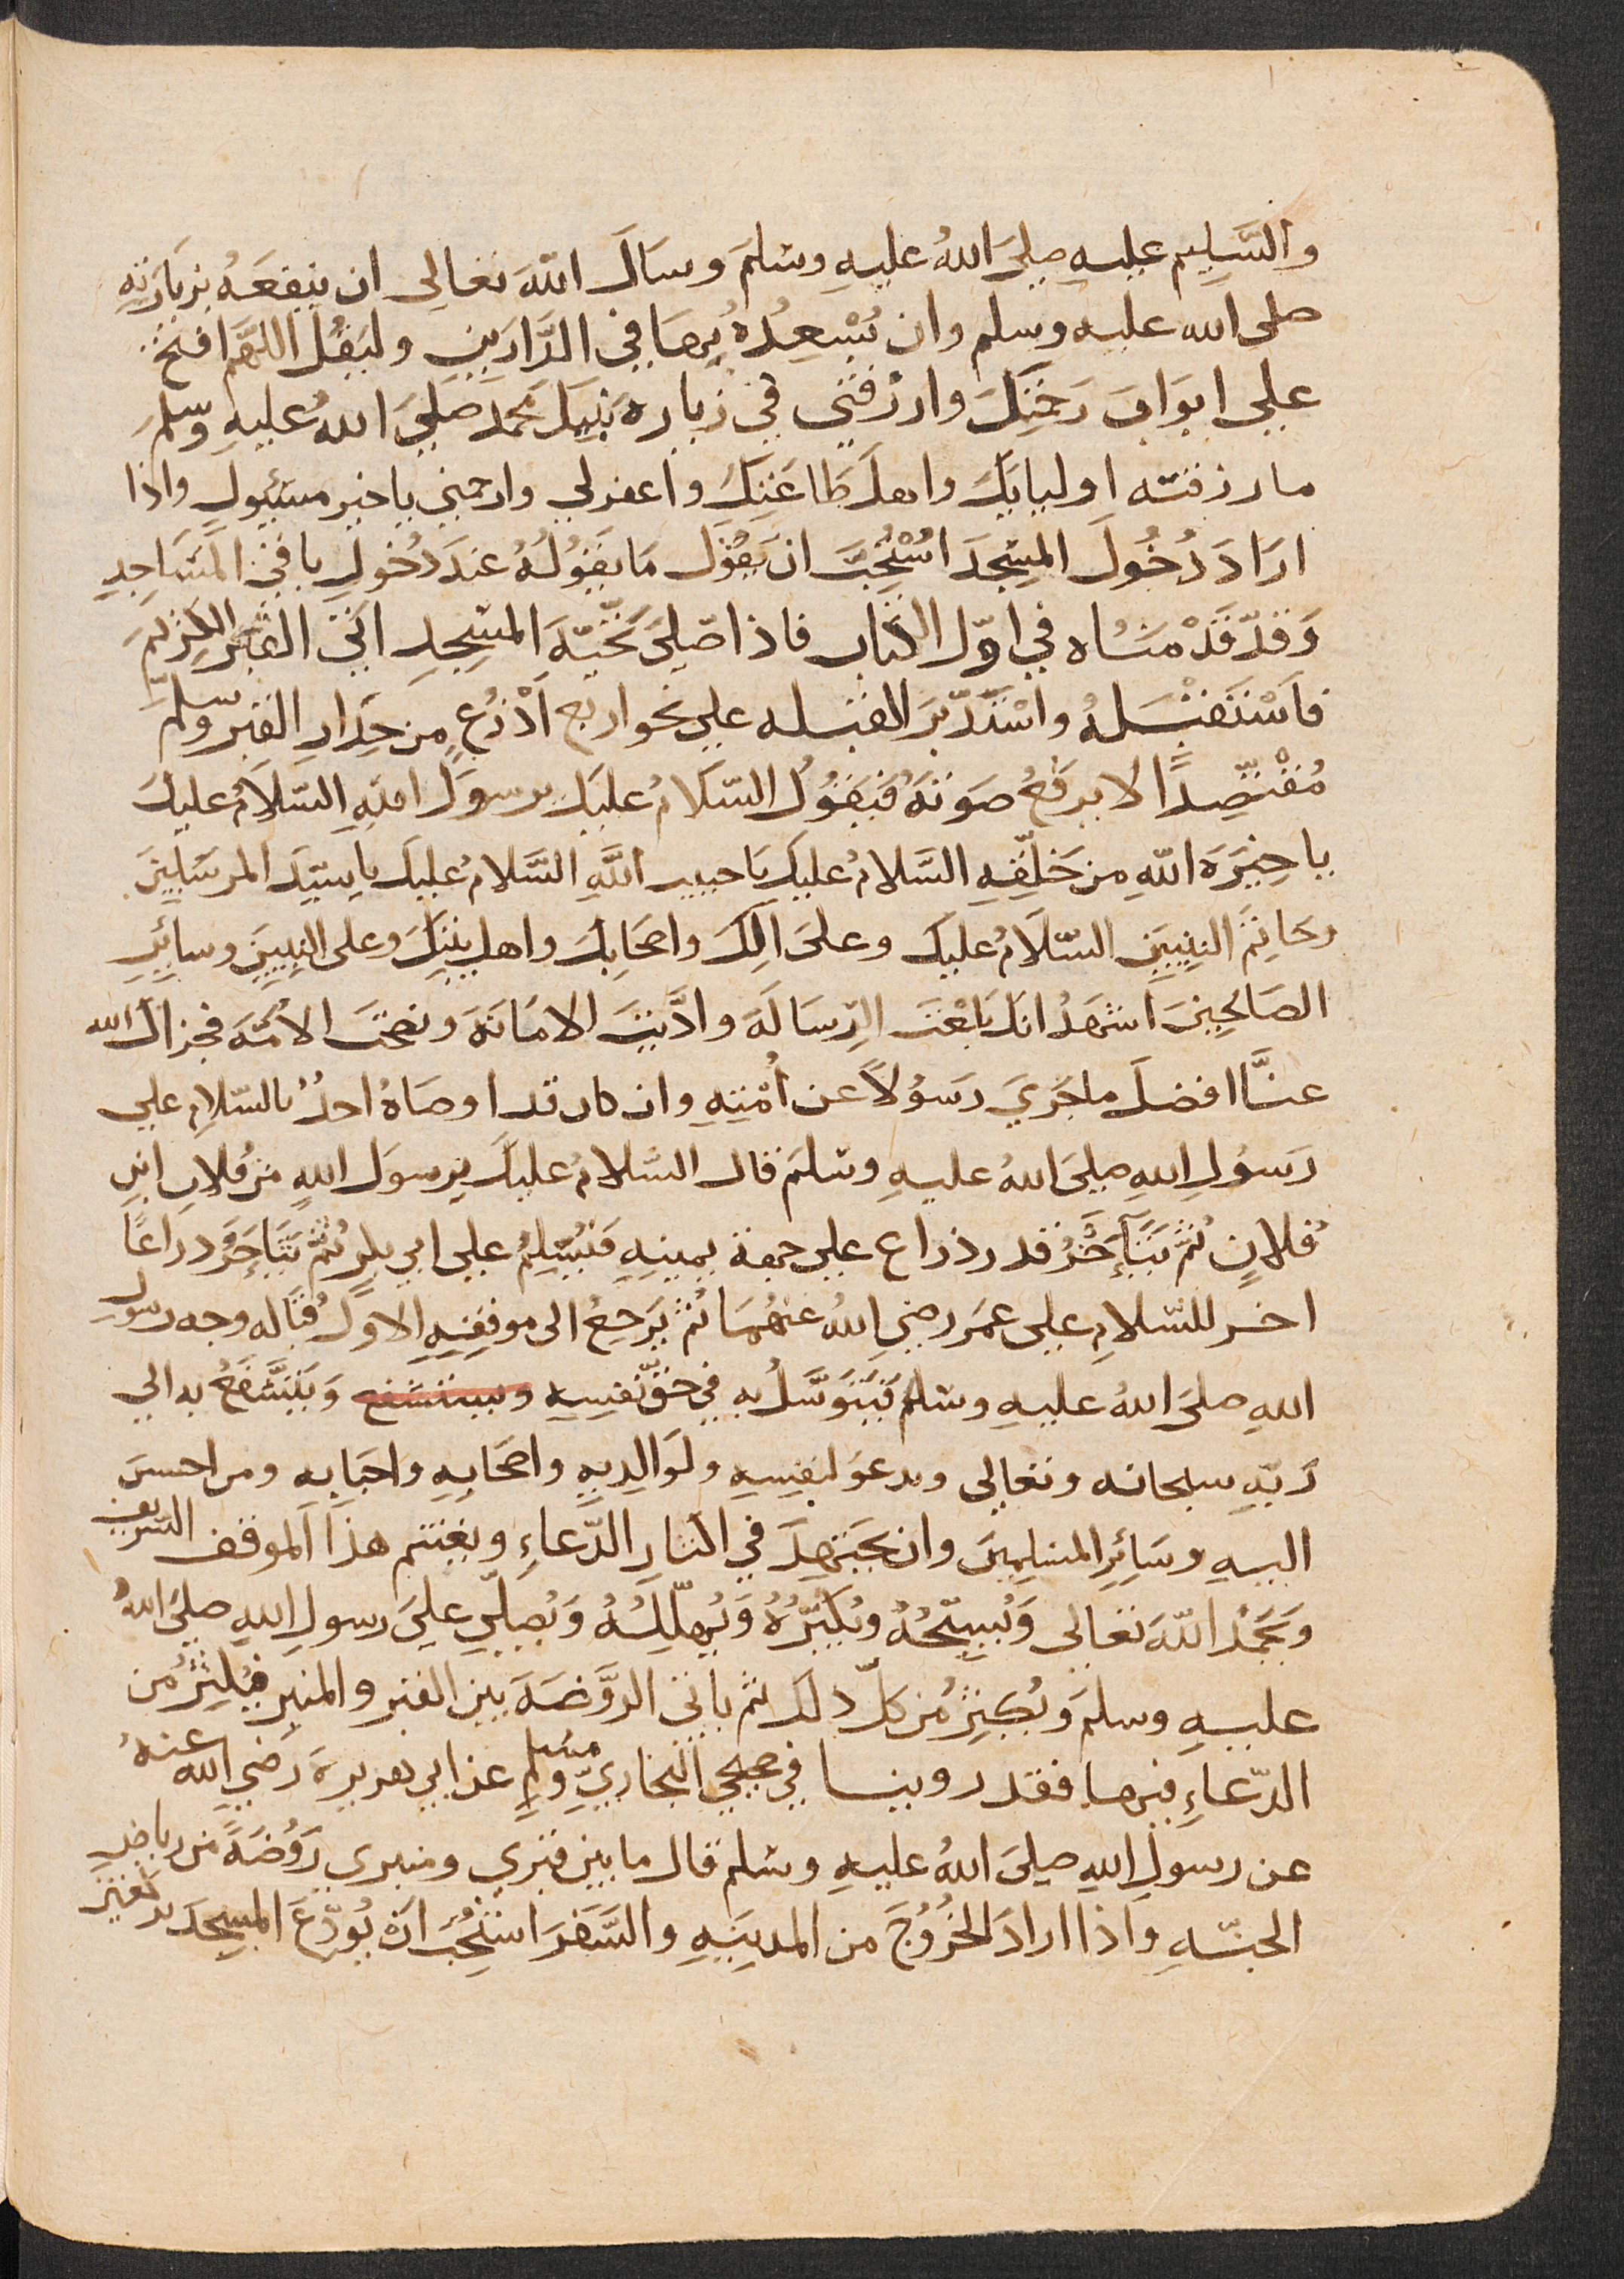 والتَّسليم عليه صلى اللهُ عليهِ وسلمَ وسَالَ اللهَ تعالى ان ينفعَهُ بزيارَتِهِ
صلى الله عليه وسلم وان يُسْعِدُهُ بِهَا في الدَّارَينِ وليَقُل اللهَّم افتحْ
على ابوَابَ رَحمتِكَ وارزقني في زيارة نَبيكَ محمد صَلىَ اللهُ عليهِ وسلمَ
ما رزقته اوليايَكَ واهلَ طَاعَتِكَ واغفرلي وارحمني يا خير مسئول واذا
ارَادَ دُخُولَ المسْجدَ اسْتُحِبَّ ان يقوُل مَا يقوُلُهُ عندَ دُخولِ باقي المَسَاجِدِ
وَقدّ قدْ منَاه في اوّل الكتاب فاذا صَلىَ تحَيّةَ المسْجِدِ اتى القبر الكريمَ
فاَسْتَقْبَلهُ واسْتدّبرَ القبله على نحو اربع اَذْرُعٍ من جِدَارِ القبر وسلّمَ
مُقْتصِدًا لا يرفعُ صَوتهُ فَيَقوُلُ السّلامُ عليكَ يرسوَلَ اللهِ السّلاَمُ عليكَ
يا خِيَرَة اللهِ من خَلقِهِ السَّلامُ عليكَ يَا حبيبَ اللَّهِ السَّلامُ عليكَ يا سَيّدَ المرسَلينَ
وخَاتِمَ النبيينِ السّلاَمُ عليكَ وعلىَ الِكَ واصحَابِكَ واهلِ بيتِكَ وعلى النبِيينَ وسايِرِ
الصَالحِينَ اشهَدُ انكَ بَلغْتَ الرِّسَالةَ وادَّيتَ الامَانَةَ ونصحتَ الاُمّةَ فجزاكَ الله
عنَّا افضلَ ما جَزيَ رَسوُلاً عن أُمّتِهِ وان كان قد اوصَاهُ احدٌ بالسّلامِ على
رَسوُلِ اللهِ صلىَ اللهُ عليهِ وسلمَ قال السّلامُ عليكَ يرسوَل اللهِ من فُلانِ ابنِ
فُلانٍ ثُمَّ يَتَأخَّرُ قدر ذراع على جهة يمينِهِ فيُسَلِمُ على ابي بكرٍ ثُمَّ يتَأخَّرُ دراعًا
اخر للسّلامِ على عمَر رضي اللهُ عنهُمَا ثُم يَرجعُ الى موقِفِهِ الاوَّلِ قُبَاله وجه رسول
اللهِ صلىَ اللهُ عليهِ وسلم فيَتَوسَّلُ بِهِ في حَقّ نفسِهِ ويستشفع وَيَتشَّفعُ به الى
رَبّهِ سبحانه وتعالى ويدعوَ لنفسِهِ ولوَالِديهِ واصحَابِهِ واحبَابِه ومن احسنَ
اليهِ وسَائِرِ المسْلِمينَ وان يَجتهِدَ في اكثارِ الدّعاءِ ويغتنم هذَا الموقف الشريف
وَيَحمَدُ اللهَ تعَالى وَيُسبِّحُهُ ويُكَبّرُهُ وَيُهلّلِهُ وَيُصلّي علىَ رسولِ اللهِ صلىَ اللهُ
عليهِ وسلمَ ويُكثِرُ من كلّ ذلك ثم ياتي الروّضَة بين القبر والمنبر فيُكثِرُ من
الدّعاءِ فيها فقد روينا في صحيحي البخاريّ ومسلمٍ عن ابي هريرةَ رَضي الله عنهُ
عن رسولِ اللهِ صلىَ اللهُ عليهِ وسلم قال ما بين قبري ومنبري رَوُضَةً من رياضِ
الجنّةِ واذا ارادَ الخرُوُجَ من المدينَةِ والسَّفرَ استُحِبَّ ان يُودّعَ المسجدَ بركعتينِ